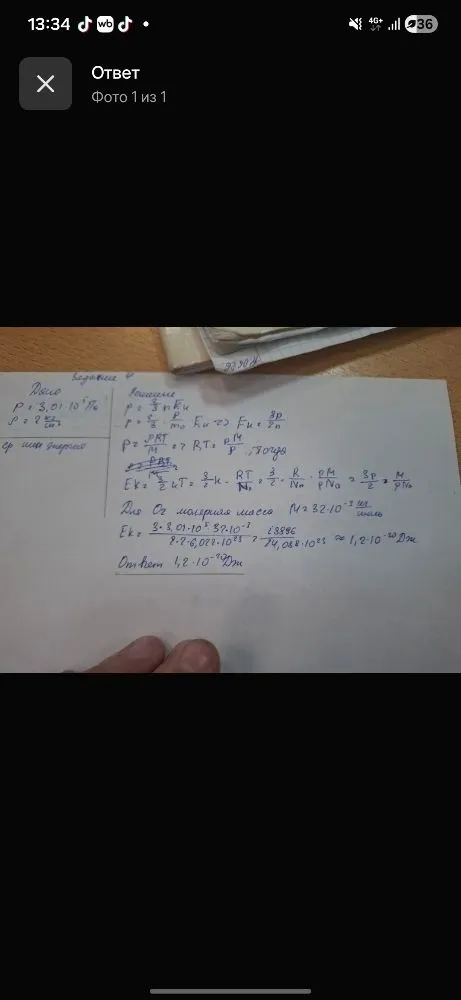 13:34
4G+
36
Ответ
Фото 1 из 1
Задание 4
Дано
P = 3,01·10⁵ Па
ρ = 2 кг/м³
ср кин энергия
Решение
p = 2/3 n Eк
p = 2/3 · ρ/m₀ Eк => Eк = 3p/2n
P = ρRT/M => RT = pM/ρ, тогда
Eк = 3/2 кT = 3/2 к · RT/N = 3/2 · R/Na · pM/ρNa = 3p/2 = M/ρNa
Для O₂ молярная масса M = 32·10⁻³ кг/моль
Eк = 3·3,01·10⁵·32·10⁻³/2·2·6,022·10²³ = 28896/24,088·10²³ ≈ 1,2·10⁻²⁰ Дж
Ответ 1,2·10⁻²⁰ Дж